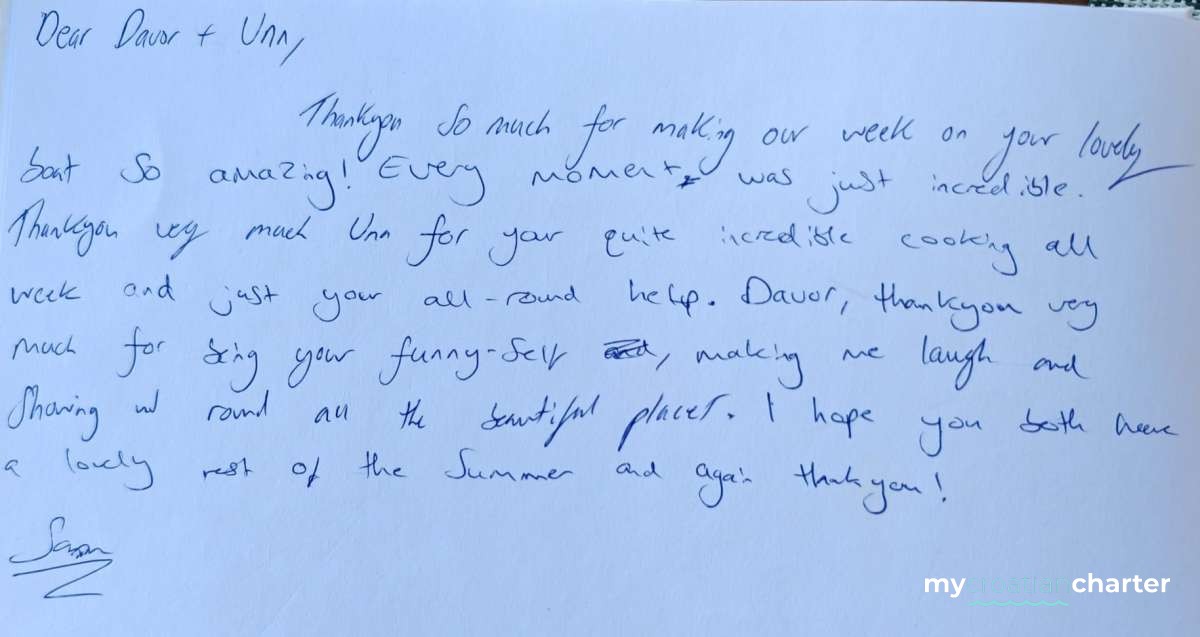 Dear Davor + Unn,
Thankyou so much for making our week on your lovely
boat so amazing! Every moment was just incredible.
Thankyou very much Unn for your quite incredible cooking all
week and just your all-round help. Davor, thankyou very
much for being your funny-self and, making me laugh and
showing us round all the beautiful places. I hope you both have
a lovely rest of the summer and again thankyou!
my croatian charter